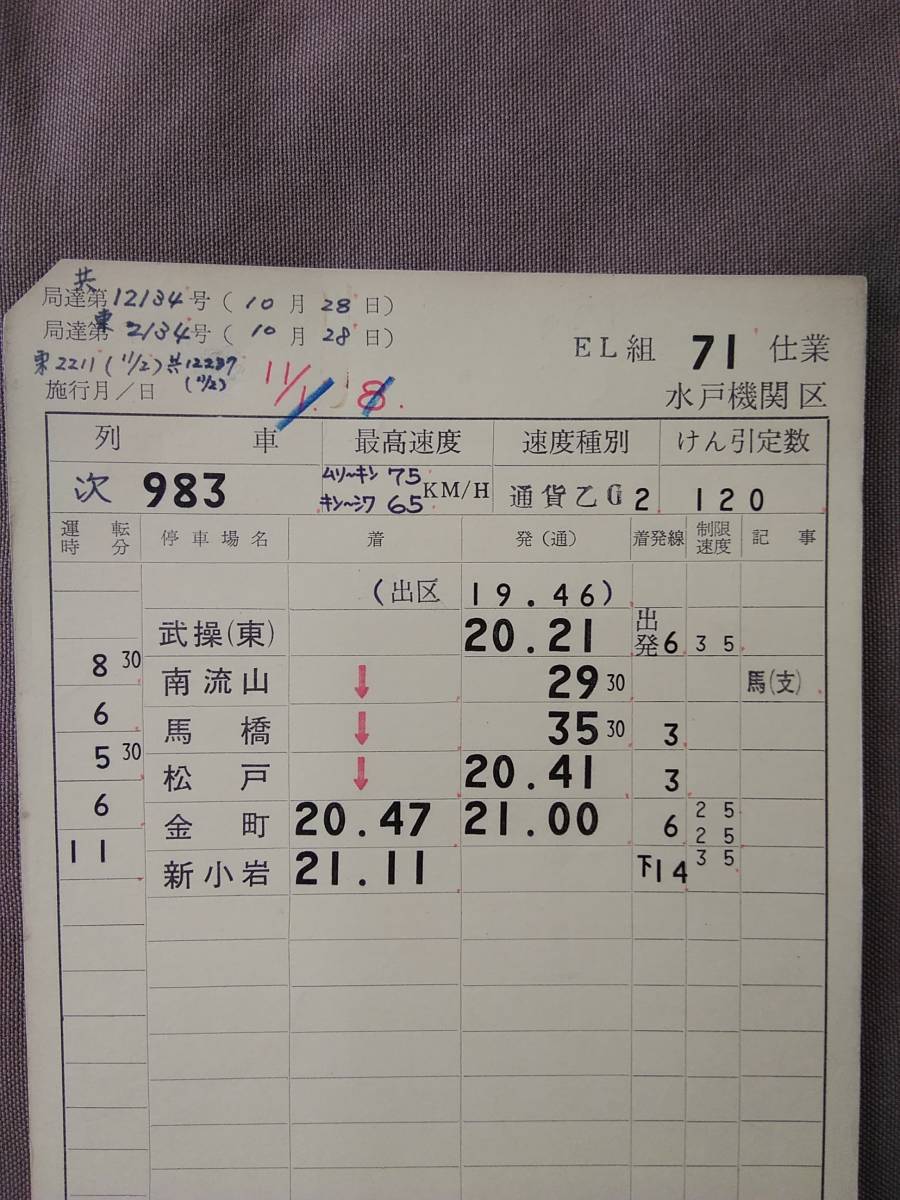 共
局達第12134号(10月28日)
東
局達第2134号(10月28日)
東2211(11/2)共12287(11/2)
施行月/日 11/1. 8.
EL組 71 仕業
水戸機関区
列車 最高速度 速度種別 けん引定数
次 983 ムリ〜キン 75 キン〜シワ 65 KM/H 通貨乙G2 120
運転時分 停車場名 着 発(通) 着発線 制限速度 記事
(出区 19.46)
武操(東) 20.21 出発6 35
8 30
南流山 ↓ 29 30 馬(支)
6
馬橋 ↓ 35 30 3
5 30
松戸 ↓ 20.41 3
6
金町 20.47 21.00 6 25 25
11
新小岩 21.11 下14 35